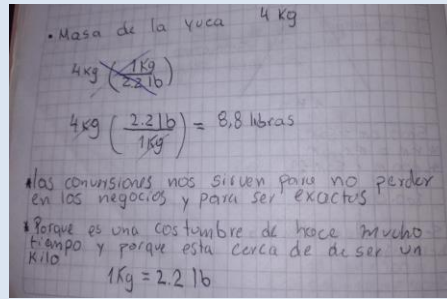 • Masa de la yuca 4 Kg
4kg (1Kg / 2.2 lb)
4kg (2.2 lb / 1Kg) = 8,8 libras
• las conversiones nos sirven para no perder
en los negocios y para ser exactos
• Porque es una costumbre de hace mucho
tiempo y porque esta cerca de de ser un
Kilo
1Kg = 2.2 lb